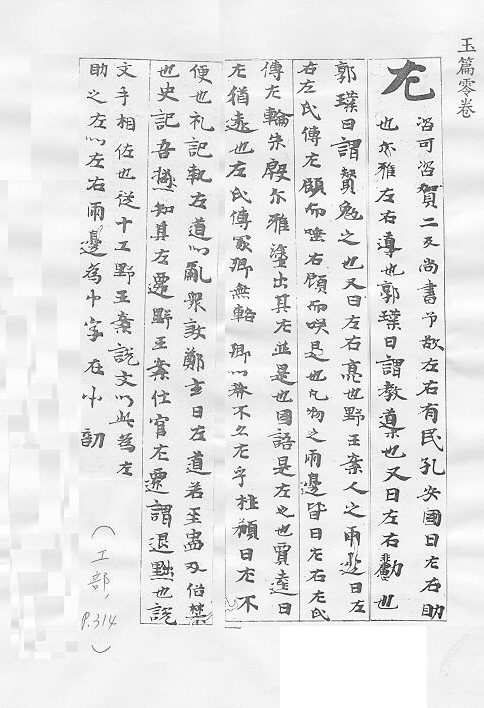 玉篇零卷
左 咨可咨賀二反尚書予欲左右有民孔安國曰左右助
也尒雅左右導也郭璞曰謂教導也又曰左右勴也
郭璞曰謂賛勉之也又曰左右亮也野王案人之兩邊曰左
右左氏傳左顧而唾右顧而咲是也凡物之兩邊皆曰左右左氏
傳左輪朱殷尒雅塗出其左並是也國語是左之也賈逵曰
左猶遠也左氏傳冢卿無路卿以葬不左乎杜預曰左不
便也礼記執左道以亂衆鄭玄曰左道若巫蠱及俗禁
也史記吾極知其左遷野王案仕官左遷謂退黜也說
文手相佐也從十工野王案說文以此爲左
助之左以左右兩邊爲字在部
(工部, P.314)